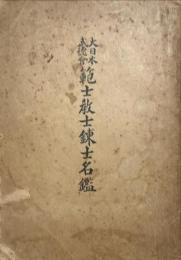 大日本
武徳会
範士教士錬士名鑑